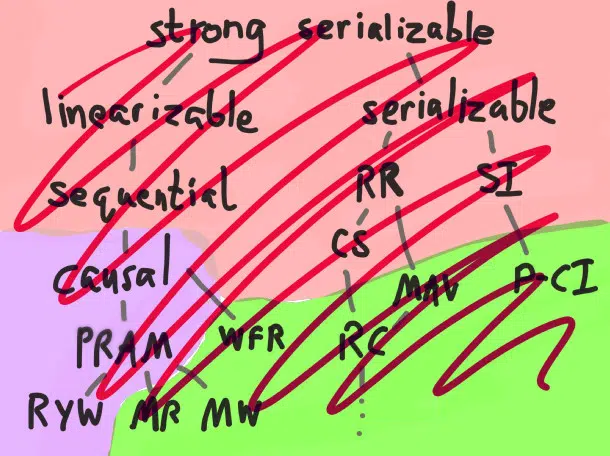 strong serializable
linearizable serializable
sequential RR SI
causal CS MAV P-CI
PRAM WFR RC
RYW MR MW